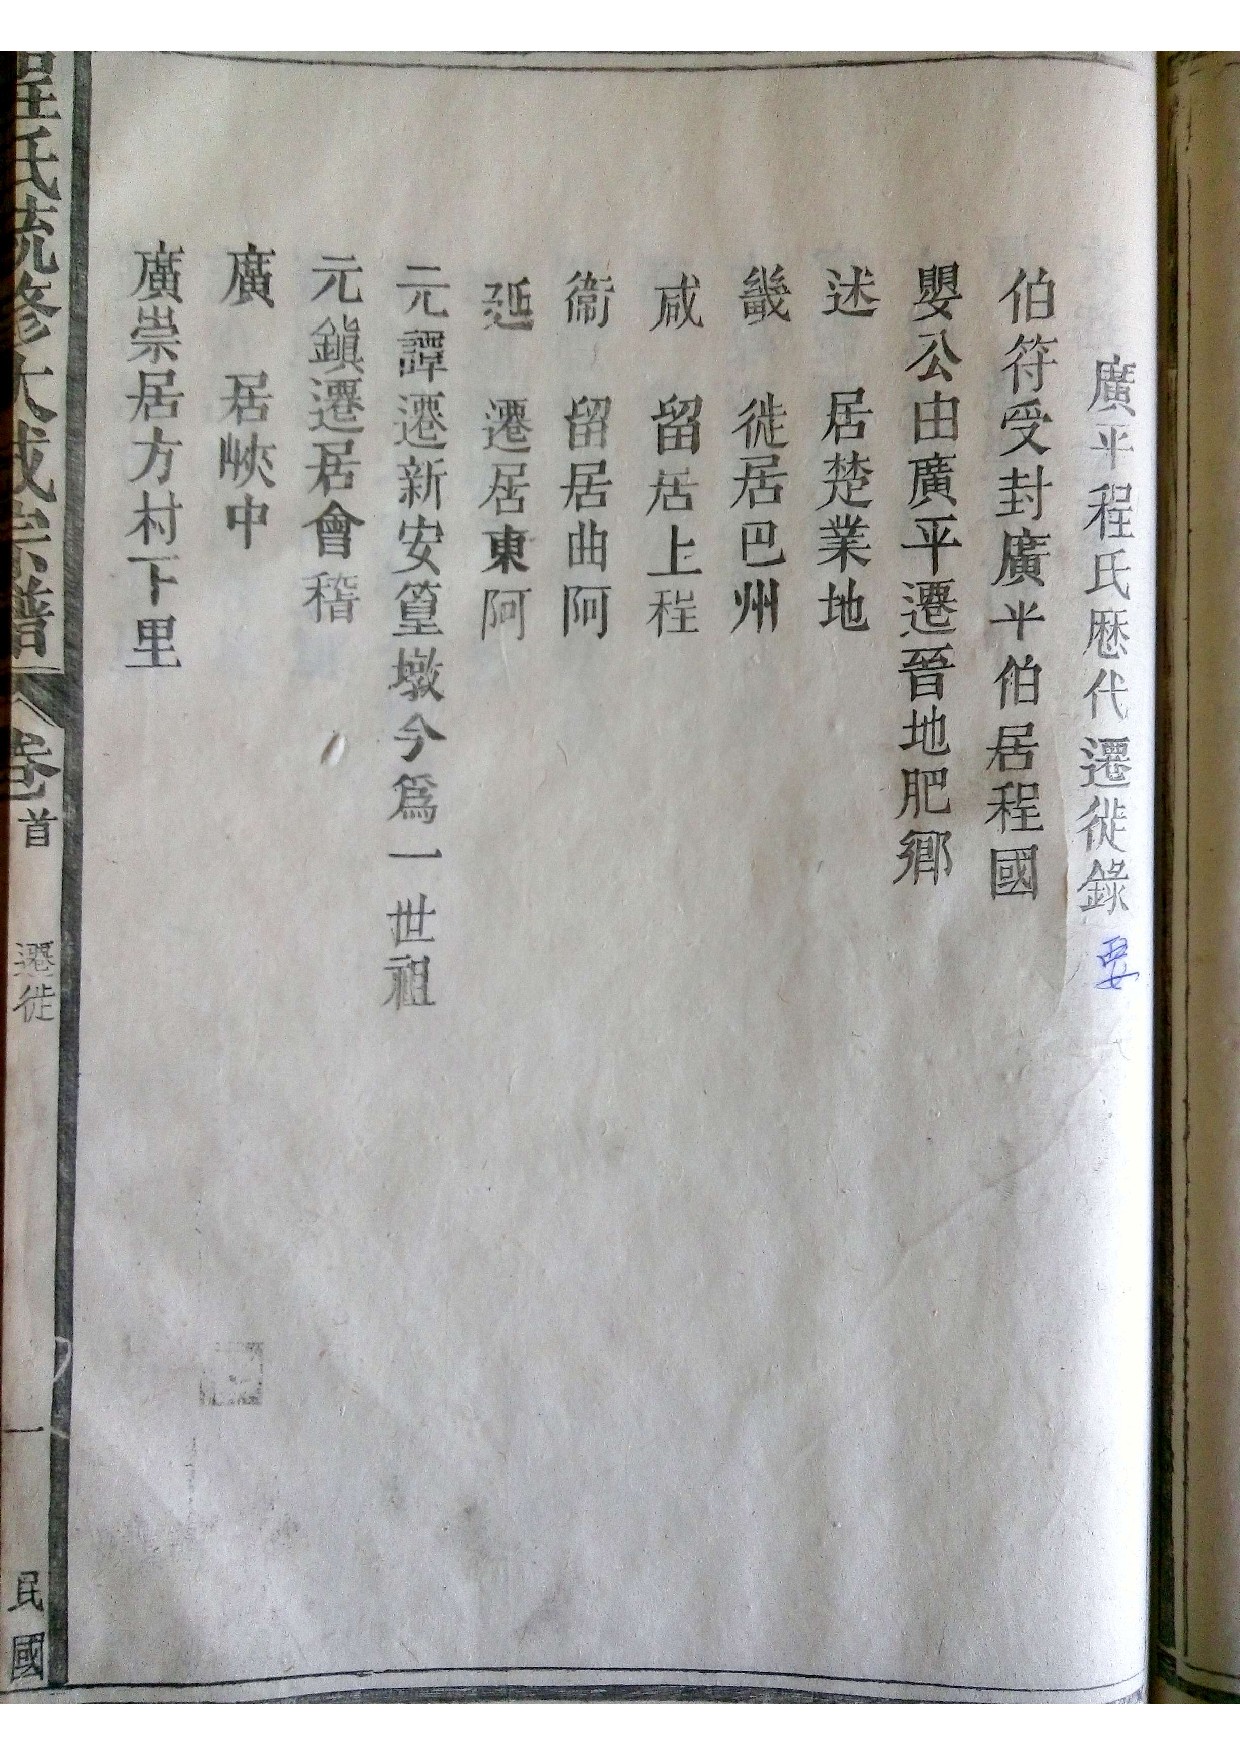 廣平程氏歷代遷徙錄 要
伯符受封廣平伯居程國
嬰公由廣平遷晉地肥鄉
述 居楚業地
畿 徙居巴州
咸 留居上程
衞 留居曲阿
延 遷居東阿
元譚遷新安篁墩今爲一世祖
元鎭遷居會稽
廣 居峽中
廣崇居方村下里
程氏統修大成宗譜 卷首 遷徙 一 民國